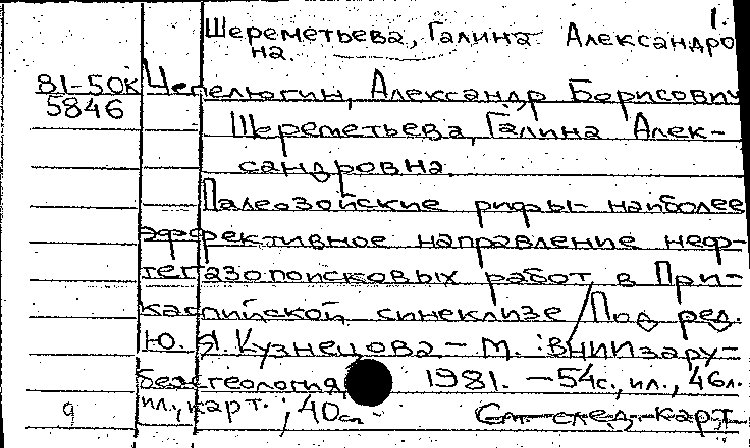 1.
Шереметьева, Галина Александро
на.
81-50к Чепелюгин, Александр Борисович
5846
Шереметьева, Галина Алек-
сандровна.
Палеозойские рифы - наиболее
эффективное направление неф-
тегазопоисковых работ в При-
каспийской синеклизе / Под ред.
Ю. Я. Кузнецова - М. : ВНИИзару-
бежгеология, 1981. - 54с., ил., 46л.
9 ил., карт. ; 40см
См. след. карт